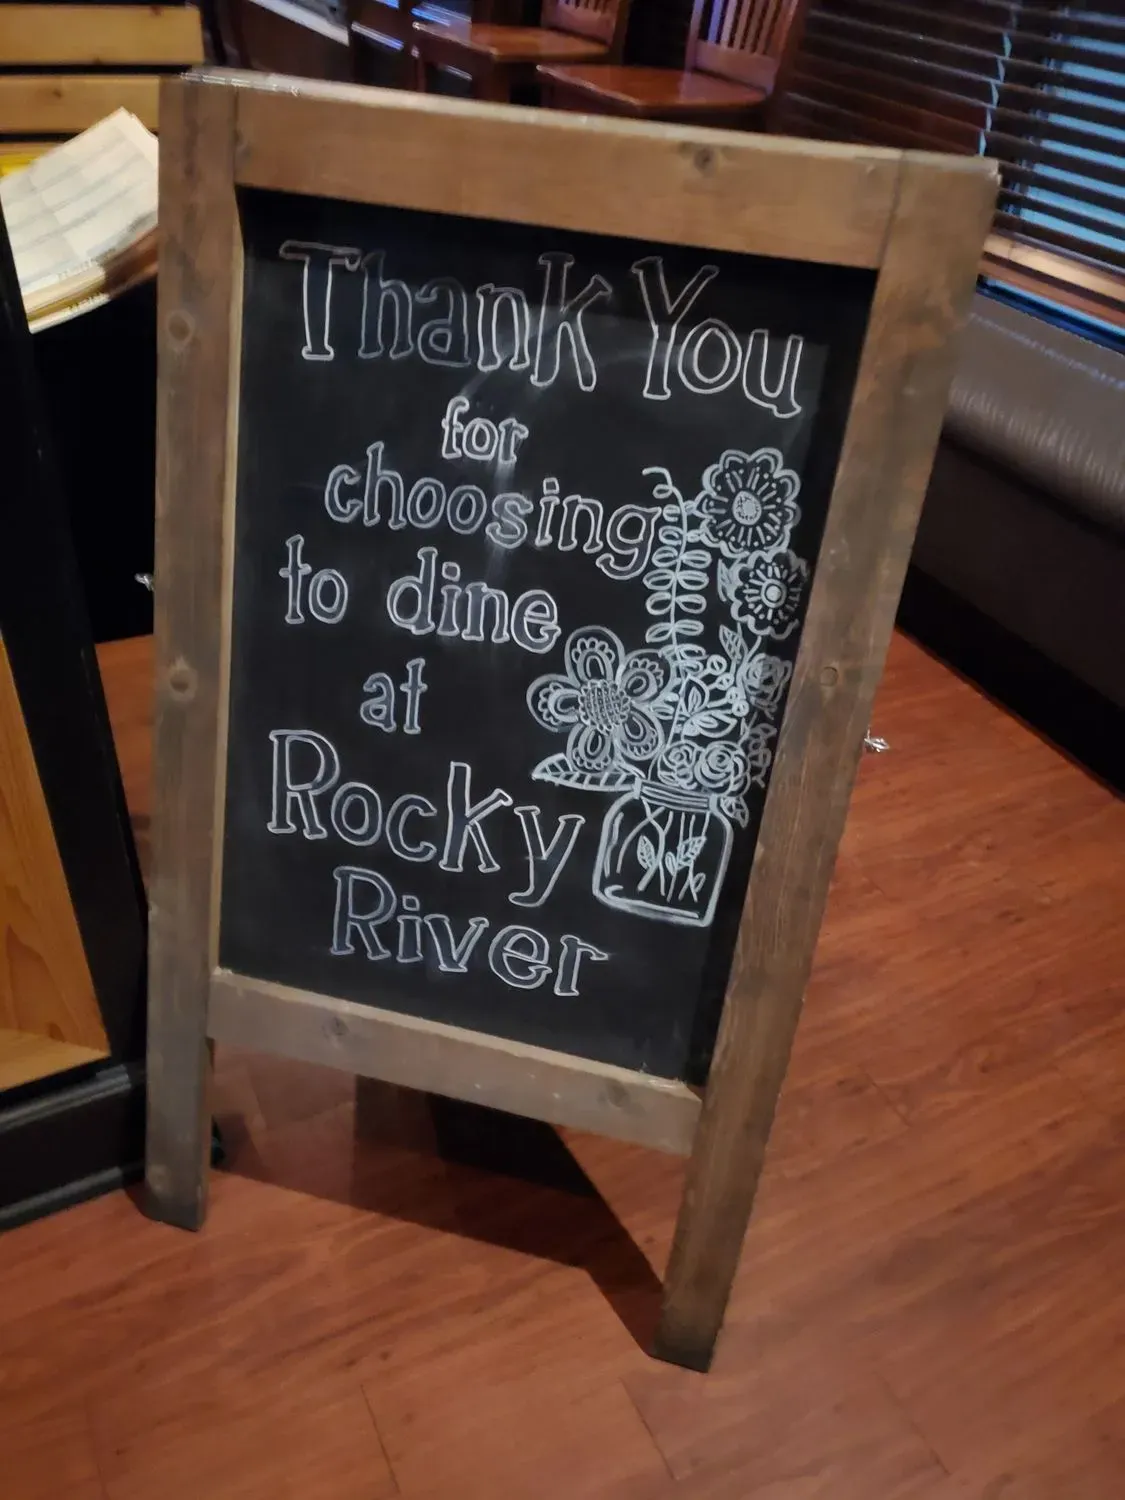 Thank You
for
choosing
to dine
at
Rocky
River